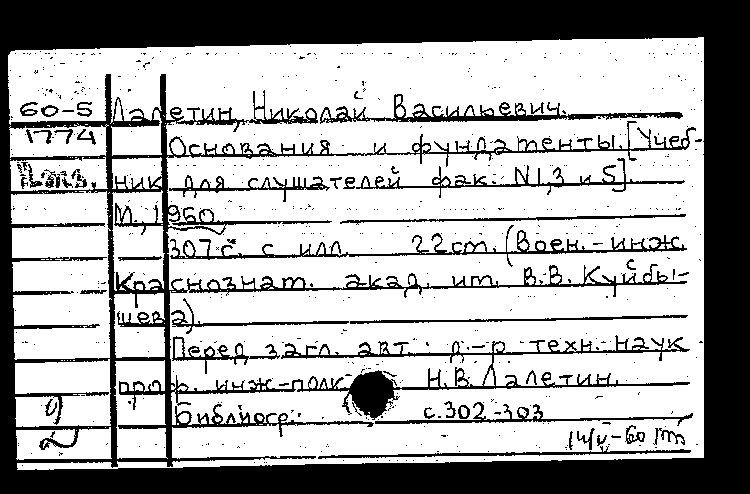 60-5 Лалетин, Николай Васильевич.
1774 Основания и фундаменты. [Учеб-
ник для слушателей фак. N1,3 и 5].
М., 1960
307 с. с илл. 22 см. (Воен.-инж.
Краснознам. акад. им. В.В. Куйбы-
шева).
Перед загл. авт.: д-р техн. наук
проф. инж-полк. Н.В. Лалетин.
Библиогр.: с. 302-303
2 14/V-60